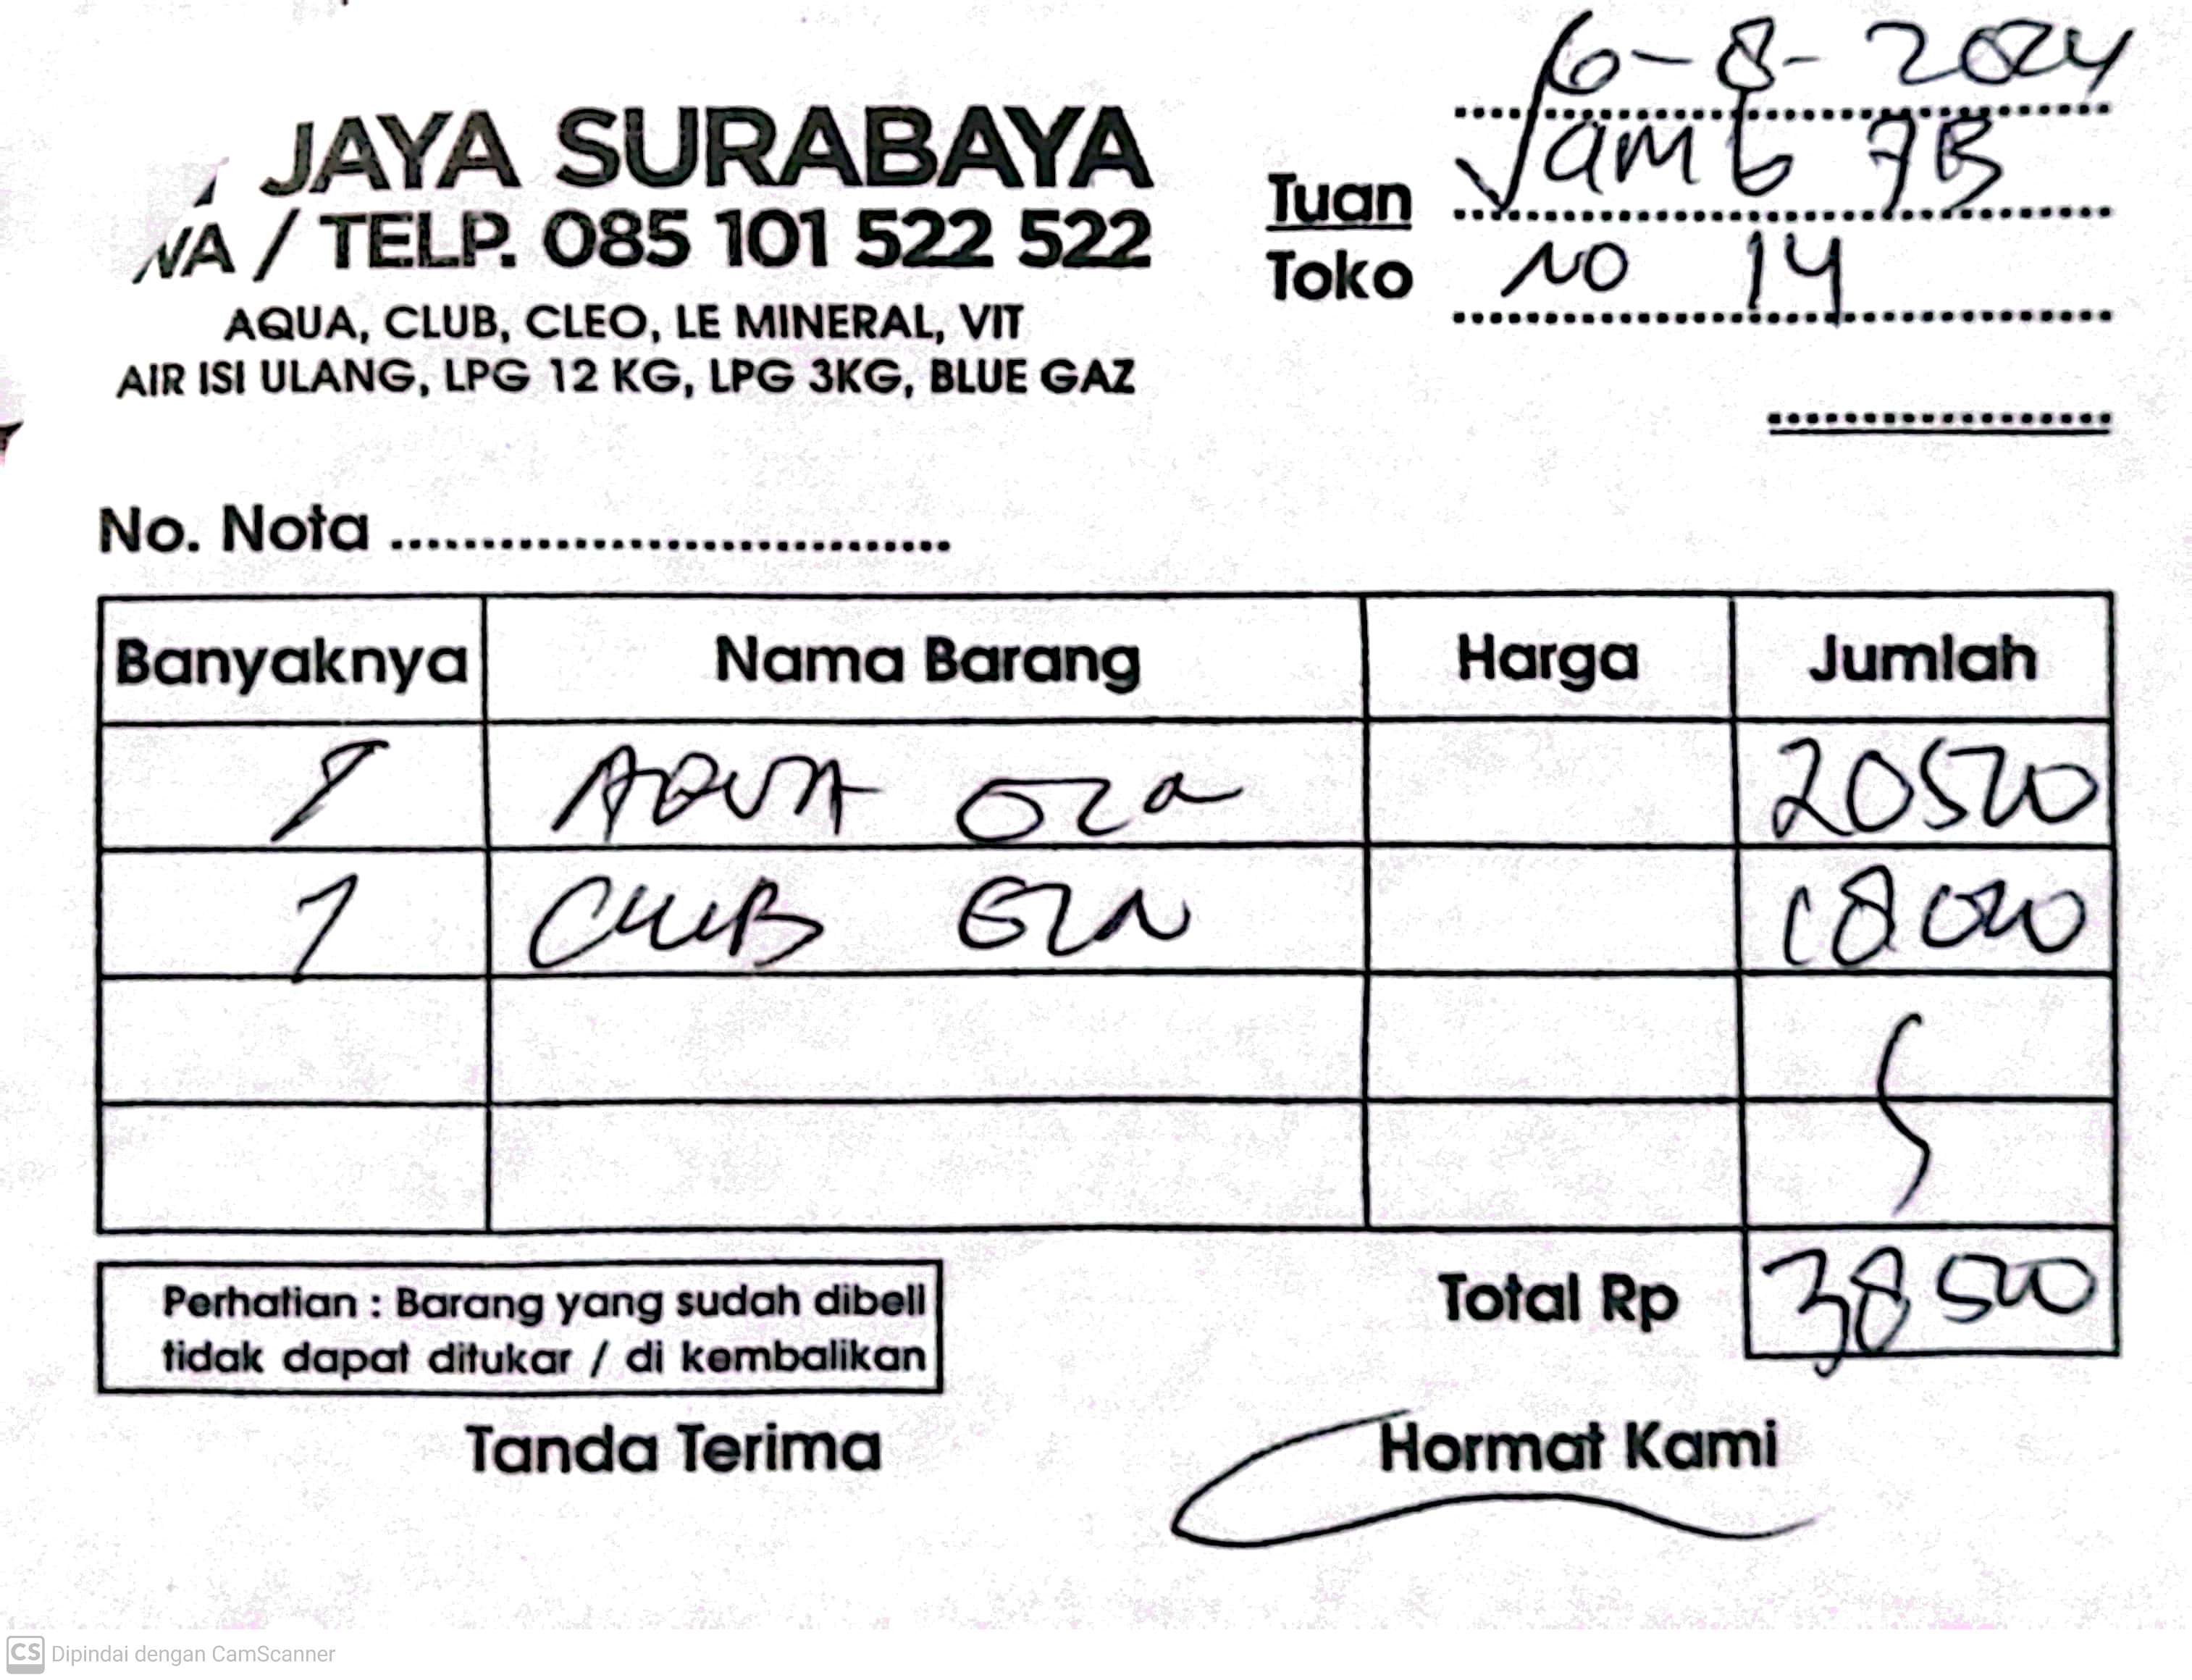 6-8-2024
JAYA SURABAYA
/ TELP. 085 101 522 522
AQUA, CLUB, CLEO, LE MINERAL, VIT
AIR ISI ULANG, LPG 12 KG, LPG 3KG, BLUE GAZ
Tuan Jamb 7B
Toko NO 14
No. Nota ..............................
Banyaknya Nama Barang Harga Jumlah
1 AQUA 20500
1 CLUB 18000
Total Rp 38500
Perhatian : Barang yang sudah dibeli
tidak dapat ditukar / di kembalikan
Tanda Terima Hormat Kami
CS Dipindai dengan CamScanner